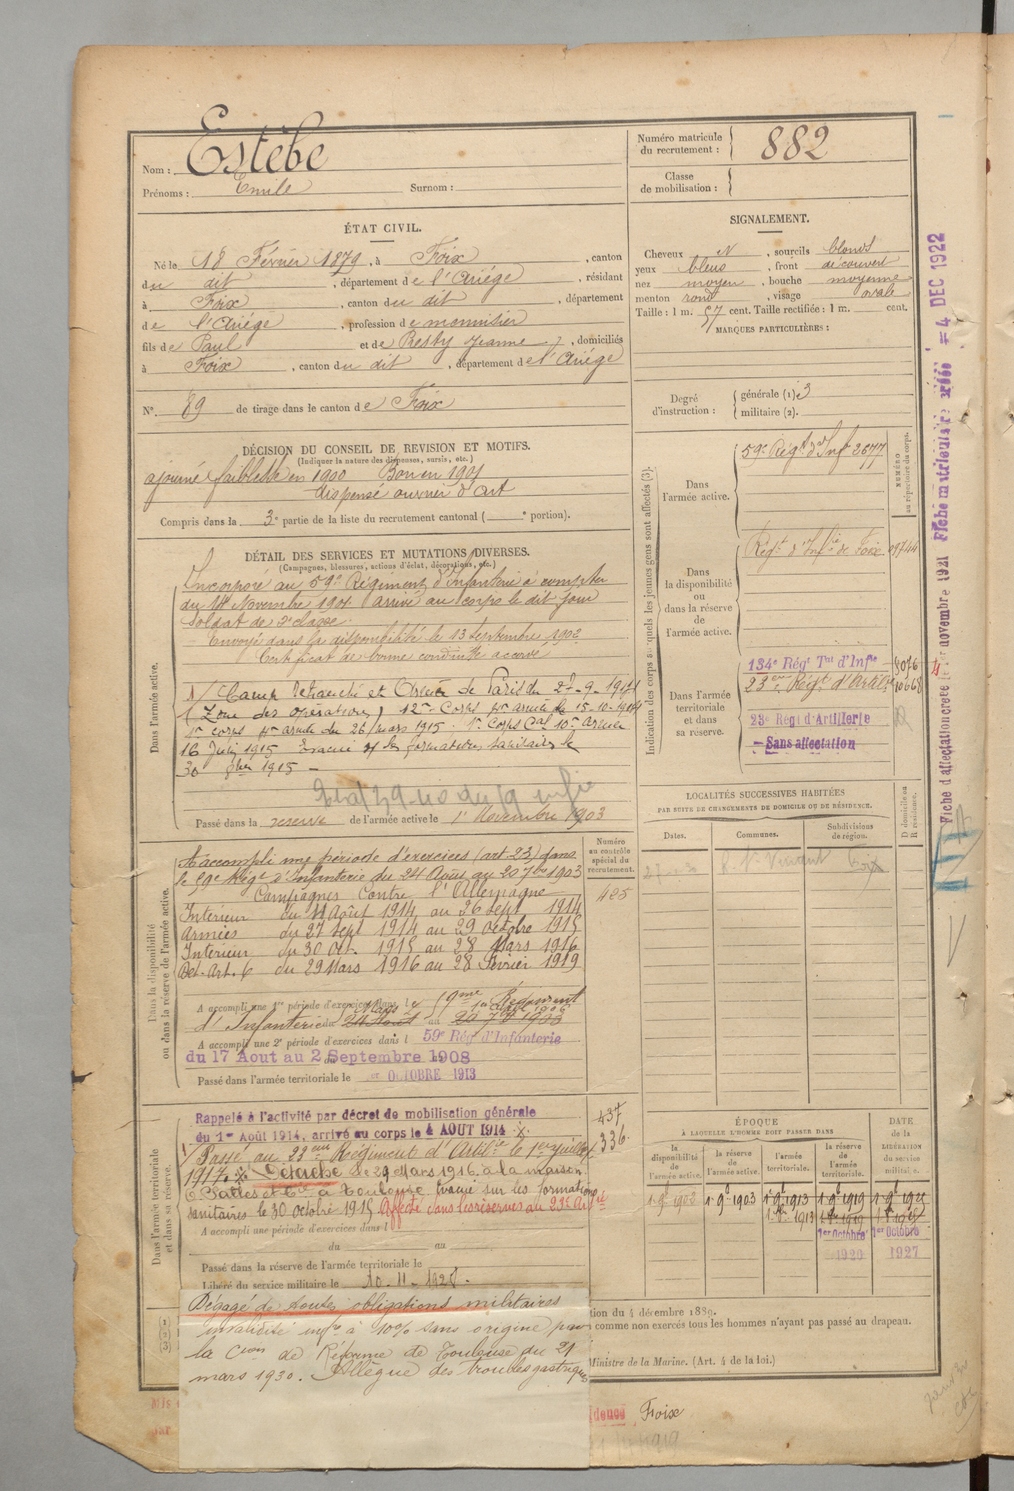 Nom : Estèbe
Prénoms : Emile Surnom :
Numéro matricule du recrutement : 882
Classe de mobilisation :
ÉTAT CIVIL.
Né le 18 Février 1879, à Foix, canton
du dit, département de l'Ariége, résidant
à Foix, canton du dit, département
de l'Ariége, profession de menuisier
fils de Paul et de Jeanne, domiciliés
à Foix, canton du dit, département de l'Ariége
N° 89 de tirage dans le canton de Foix
SIGNALEMENT.
Cheveux N, sourcils blonds
yeux bleus, front découvert
nez moyen, bouche moyenne
menton rond, visage ovale
Taille : 1 m. 57 cent. Taille rectifiée : 1 m. cent.
MARQUES PARTICULIÈRES :
Degré d'instruction : générale (1) 3
militaire (2).
DÉCISION DU CONSEIL DE REVISION ET MOTIFS.
(Indiquer la nature des dispenses, sursis, etc.)
ajourné faiblesse en 1900 Bon en 1901
dispensé ouvrier d'art
Compris dans la 3e partie de la liste du recrutement cantonal ( e portion).
DÉTAIL DES SERVICES ET MUTATIONS DIVERSES.
(Campagnes, blessures, actions d'éclat, décorations, etc.)
Dans l'armée active.
Incorporé au 59e Régiment d'Infanterie à compter
du Novembre 1901 arrivé au corps le dit jour
Soldat de 2e classe.
Envoyé dans la disponibilité le 13 Septembre 1902
Certificat de bonne conduite accordé
Camp Retranché et de Paris du 27-9-1914
(Zone des opérations) 12me Corps armée le 15-10-1914
corps armée du 26 mars 1915 Corps Cal 10e Armée
16 Juin 1915 Evacué formations sanitaires le
30 1915
Passé dans la reserve de l'armée active le 1er Novembre 1903
Dans la disponibilité ou dans la réserve de l'armée active.
Numéro au contrôle spécial du recrutement.
425
A accompli une période d'exercices (art. 23) dans
le 59e Régt d'Infanterie du 24 Août au 20 7bre 1903
Campagnes Contre l'Allemagne
Intérieur du 4 Août 1914 au 26 sept 1914
Armées du 27 sept 1914 au 29 octobre 1915
Intérieur du 30 Oct. 1915 au 28 Mars 1916
Det. Art. 6 du 29 Mars 1916 au 28 Février 1919
A accompli une 1re période d'exercices dans le 9me Régiment
d'Infanterie du 24 Août au 20 7bre 1903
A accompli une 2e période d'exercices dans l 59e Rég d'Infanterie
du 17 Aout au 2 Septembre 1908
Passé dans l'armée territoriale le 1er OCTOBRE 1913
Dans l'armée territoriale et dans sa réserve.
Rappelé à l'activité par décret de mobilisation générale
du 1er Août 1914, arrivé au corps le 4 AOUT 1914
437
336
Passé au 23eme Régiment d'Artillie le 1er Juillet
1917. Détaché le 29 Mars 1916 à la maison
Battes et Cie à Toulouse Evacué sur les formations
sanitaires le 30 octobre 1915 Affecté dans les réserves au 23e Art
A accompli une période d'exercices dans l
du au
Passé dans la réserve de l'armée territoriale le
Libéré du service militaire le 10-11-1928.
Dégagé de toutes obligations militaires
invalidité infre à 10% sans origine par
la Cion de Réforme de Toulouse du 21
mars 1930. Allègue des troubles gastriques
Indication des corps auxquels les jeunes gens sont affectés (3).
NUMÉRO au répertoire du corps.
Dans l'armée active.
59e Régt d'Inf 2677
Dans la disponibilité ou dans la réserve de l'armée active.
Régt d'Infie de Foix 09744
Dans l'armée territoriale et dans sa réserve.
134e Régt Tal d'Infie 8076
23eme Régt d'Artie
23e Régt d'Artillerie
Sans affectation
LOCALITÉS SUCCESSIVES HABITÉES
PAR SUITE DE CHANGEMENTS DE DOMICILE OU DE RÉSIDENCE.
Dates. Communes. Subdivisions de région. D domicile ou R résidence.
Foix
ÉPOQUE
À LAQUELLE L'HOMME DOIT PASSER DANS
la disponibilité de l'armée active. la réserve de l'armée active. l'armée territoriale. la réserve de l'armée territoriale.
DATE de la LIBÉRATION du service militaire.
1 9e 1902 1 9e 1903 1 9e 1913 1 9e 1919
1913 1919
1er Octobre 1er Octobre
1920 1927
tion du 4 décembre 1889.
comme non exercés tous les hommes n'ayant pas passé au drapeau.
Ministre de la Marine. (Art. 4 de la loi.)
Foix
Fiche d'affectation créée le 1er novembre 1921 Fiche matriculaire créée = 4 DEC 1922